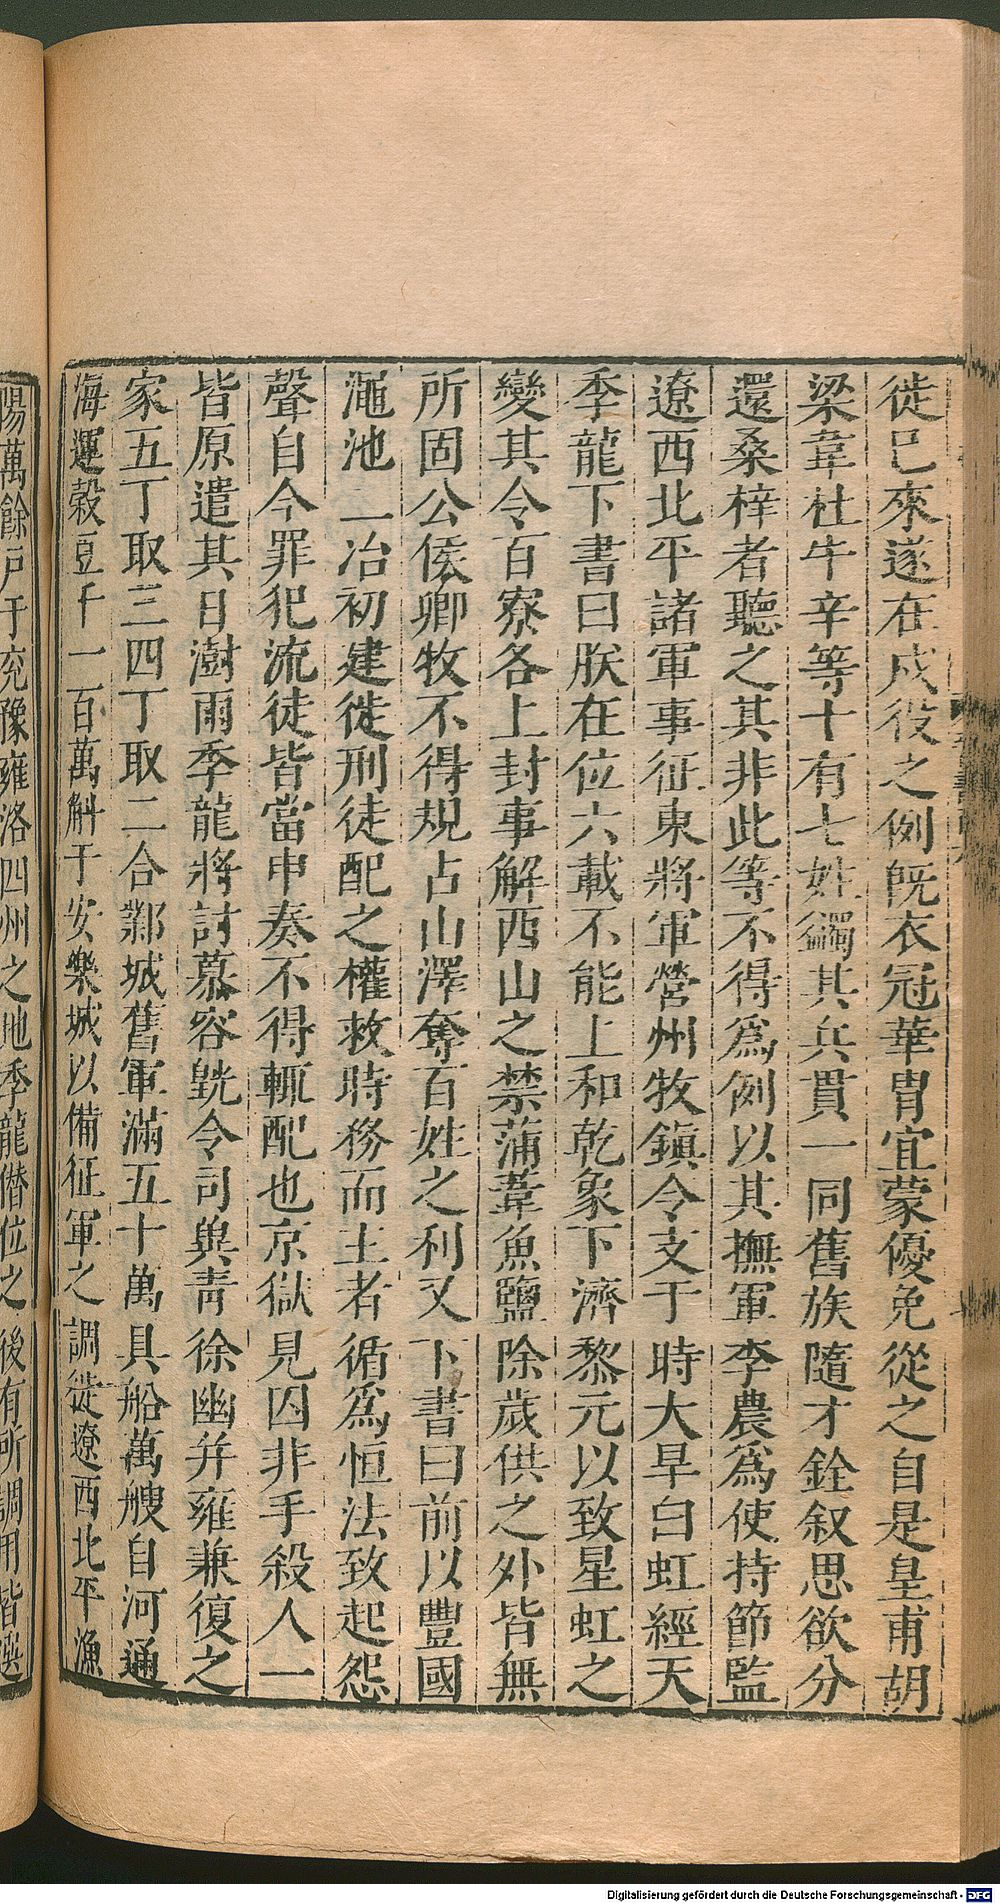 徙已來遂在戍役之例旣衣冠華冑宜蒙優免從之自是皇甫胡
梁韋杜牛辛等十有七姓蠲其兵貫一同舊族隨才銓叙思欲分
還桑梓者聽之其非此等不得爲例以其撫軍李農爲使持節監
遼西北平諸軍事征東將軍營州牧鎭令支于時大旱白虹經天
季龍下書曰朕在位六載不能上和乾象下濟黎元以致星虹之
變其令百寮各上封事解西山之禁蒲葦魚鹽除歲供之外皆無
所固公侯卿牧不得規占山澤奪百姓之利又下書曰前以豐國
澠池二冶初建徙刑徒配之權救時務而主者循爲恒法致起怨
聲自今罪犯流徒皆當申奏不得輒配也京獄見囚非手殺人一
皆原遣其日澍雨季龍將討慕容皝令司兾靑徐幽并雍兼復之
家五丁取三四丁取二合鄴城舊軍滿五十萬具船萬艘自河通
海運穀豆千一百萬斛于安樂城以備征軍之調徙遼西北平漁
陽萬餘戸于兖豫雍洛四州之地季龍僭位之後有所調用皆選
Digitalisierung gefördert durch die Deutsche Forschungsgemeinschaft - DFG